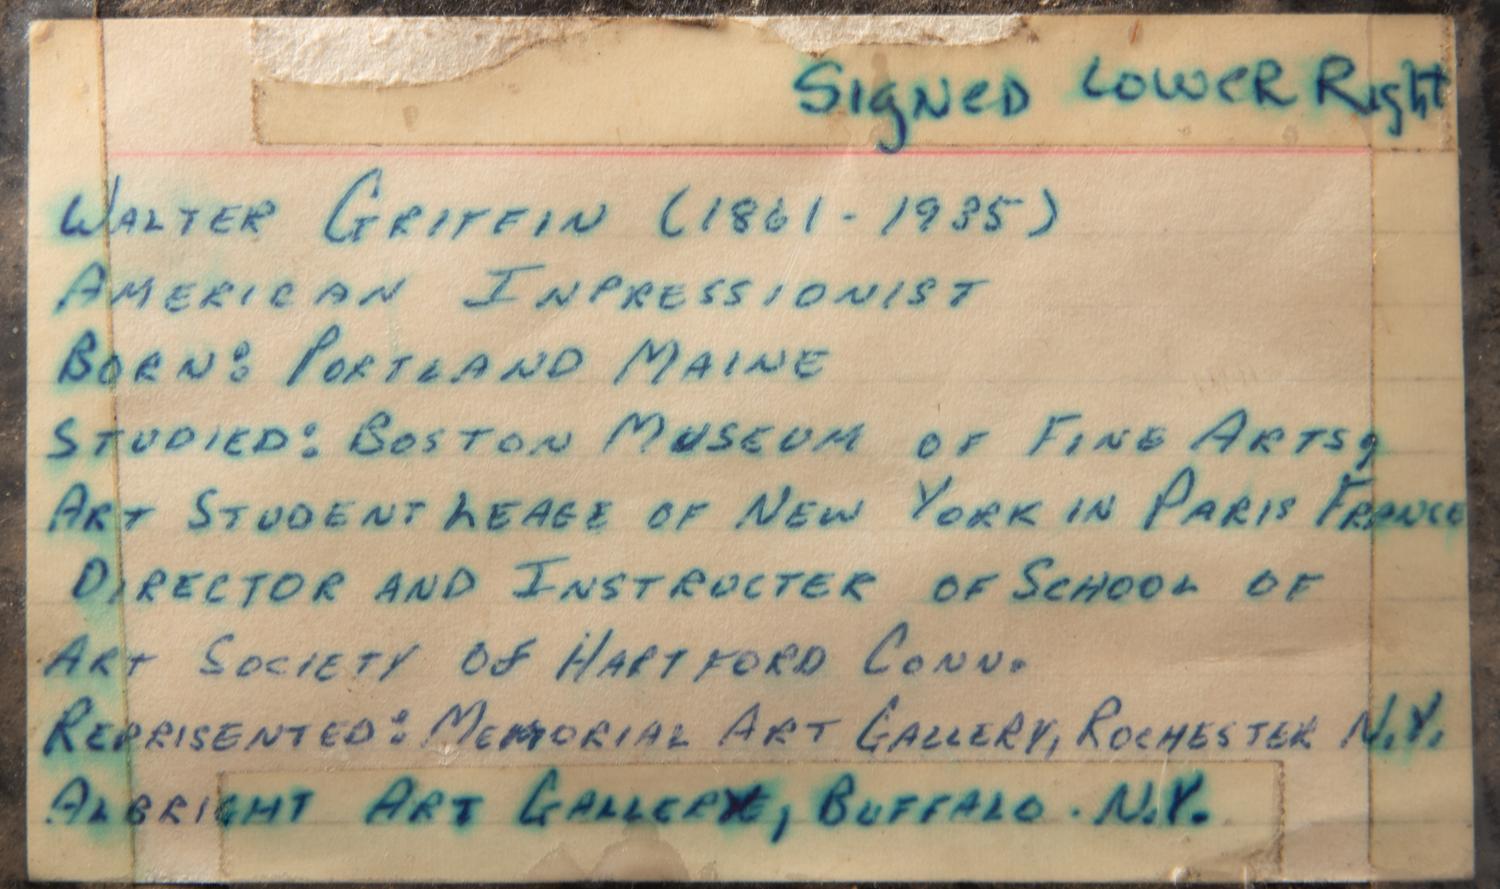 Signed Lower Right
Walter Griffin (1861-1935)
American Inpressionist
Born: Portland Maine
Studied: Boston Museum of Fine Arts,
Art Student Leage of New York in Paris France
Director and Instructer of School of
Art Society of Hartford Conn.
Reprisented: Memorial Art Gallery, Rochester N.Y.
Albright Art Gallery, Buffalo. N.Y.